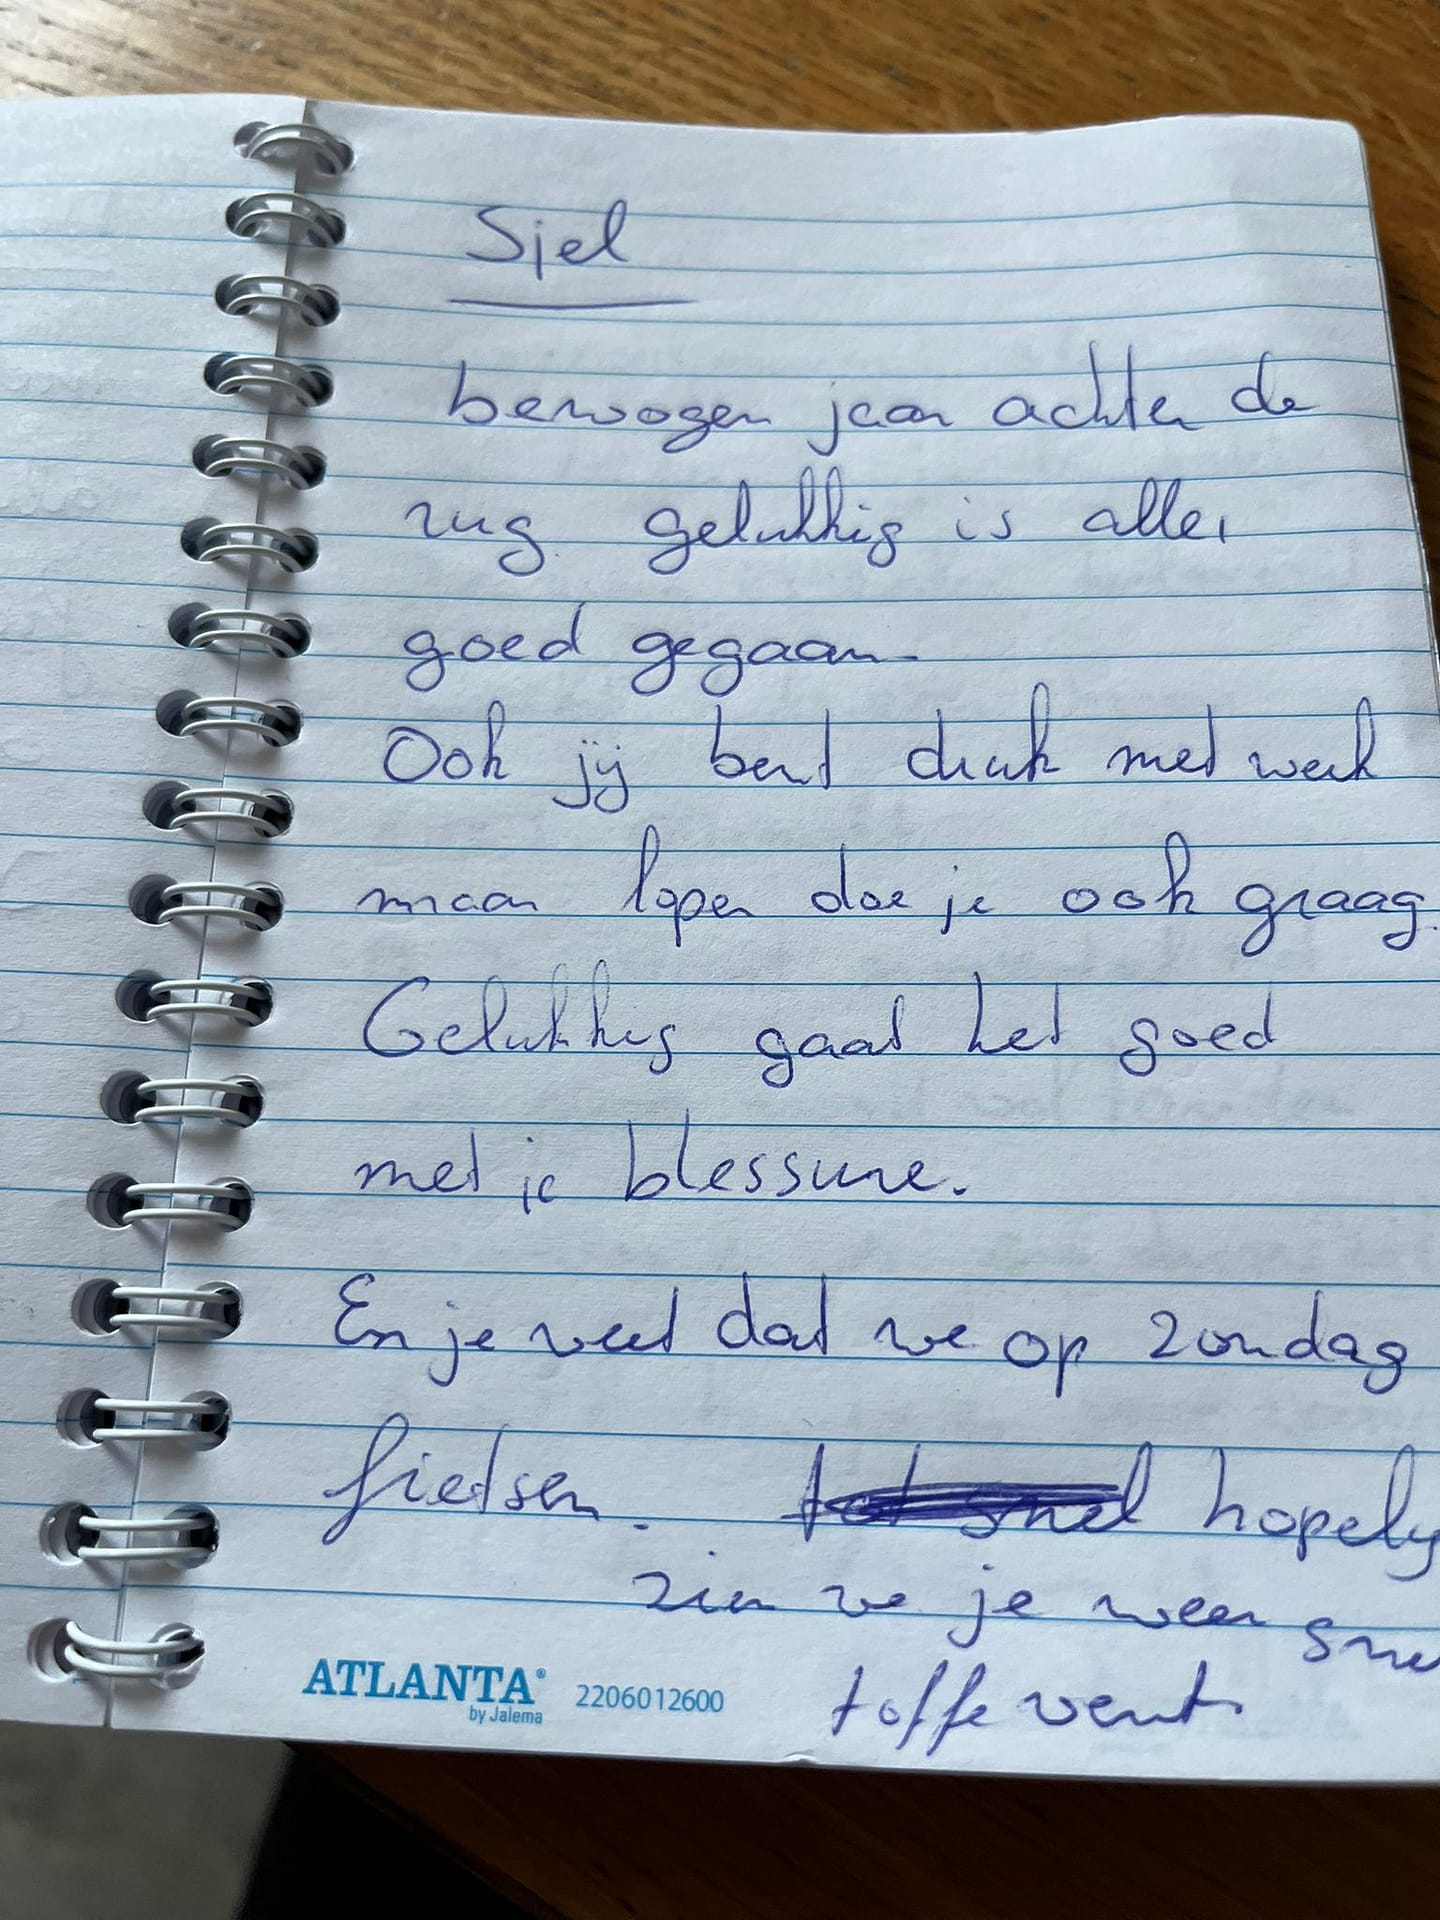 Sjel
bewogen jaar achter de
rug gelukkig is alles
goed gegaan.
Ook jij bent druk met werk
maar lopen doe je ook graag.
Gelukkig gaat het goed
met je blessure.
En je weet dat we op zondag
fietsen. tot snel hopely
zien we je weer sne
toffe vent.
ATLANTA®
by Jalema
2206012600